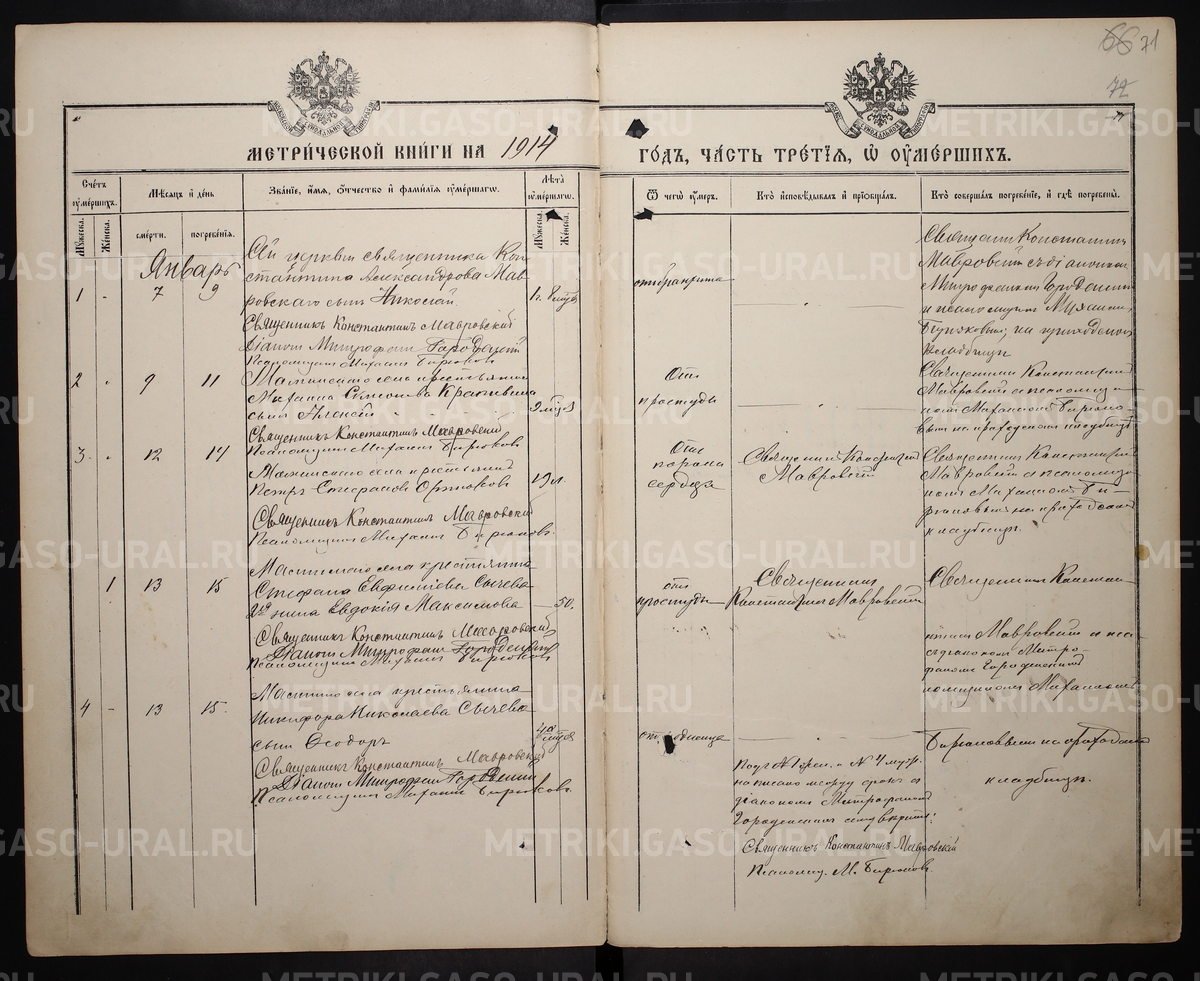 66 71
72
МЕТРИ́ЧЕСКОЙ КНИ́ГИ НА 1914
ГО́ДЪ, ЧА́СТЬ ТРЕ́ТІѦ, Ѡ ОУМЕ́РШИХЪ.
Сче́тъ оуме́ршихъ.
Мꙋжеска.
Же́нска.
Мѣ́сѧцъ и҆ де́нь
сме́рти.
погребе́нїѧ.
Зва́нїе, и҆́мѧ, ѻ҆́тчество и҆ фами́лїѧ оуме́ршагѡ.
Лѣ́та оуме́ршагѡ.
Мꙋжеска.
Же́нска.
Ѿ чегѡ̀ оу́меръ.
Кто̀ и҆сповѣ́дывалъ и҆ прїѡбща́лъ.
Кто̀ соверша́лъ погребе́нїе, и҆ гдѣ̀ погребены̀.
Январь
1 - 7 9
Сей церкви священника Кон-
стантина Александрова Мав-
ровскаго сынъ Николай.
1 г. 8 мѣс
Священникъ Константинъ Мавровскій
Діаконъ Митрофанъ Городенскій
Псаломщикъ Михаилъ Бирюковъ
отъ бронхита
Священ. Константинъ
Мавровскій съ діакономъ
Митрофаномъ Городенским
и псаломщик. Михаиломъ
Бирюковымъ, на приходском
кладбищѣ
2 - 9 11
села крестьянина
Михаила
сынъ Алексѣй
2 мѣс
Священникъ Константинъ Мавровскій
Псаломщикъ Михаилъ Бирюковъ
Отъ
простуды
Священник Константин
Мавровскій с псаломщи-
комъ Михаиломъ Бирюко-
вым на приходском кладбищѣ
3 - 12 14
села крестьянинъ
Петръ Стефановъ
19 л.
Священникъ Константинъ Мавровскій
Псаломщикъ Михаилъ Бирюковъ.
Отъ
порока
сердца
Священник Константин
Мавровскій
Священник Константин
Мавровскій с псаломщи-
ком Михаиломъ Би-
рюковым на приходском
кладбищѣ.
1 13 15
села крестьянина
Стефана Евфиміева Сычева
жена Евдокія Максимова — 50.
Священникъ Константинъ Мавровскій
Діаконъ Митрофанъ Городенскій
Псаломщикъ Михаилъ Бирюковъ
отъ
простуды
Священник
Константин Мавровскій
Священник Констан-
тин Мавровскій и пса
съ діаконом Митро-
фаном Городенским
ломщиком Михаилом
4 - 13 15.
села крестьянина
Никифора Николаева Сычева
сынъ Ѳеодоръ
мѣс
Священникъ Константинъ Мавровскій
Діаконъ Митрофанъ Городенскій
Псаломщикъ Михаилъ Бирюковъ
отъ родимца
Бирюковым на приходском
кладбищѣ.
Подъ № 1 жен. и № 4 муж.
написано между строк „съ
діаконом Митрофаном
Городенским“ сему вѣрить:
Священникъ Константинъ Мавровскій
Псаломщ. М. Бирюковъ
METRIKI.GASO-URAL.RU